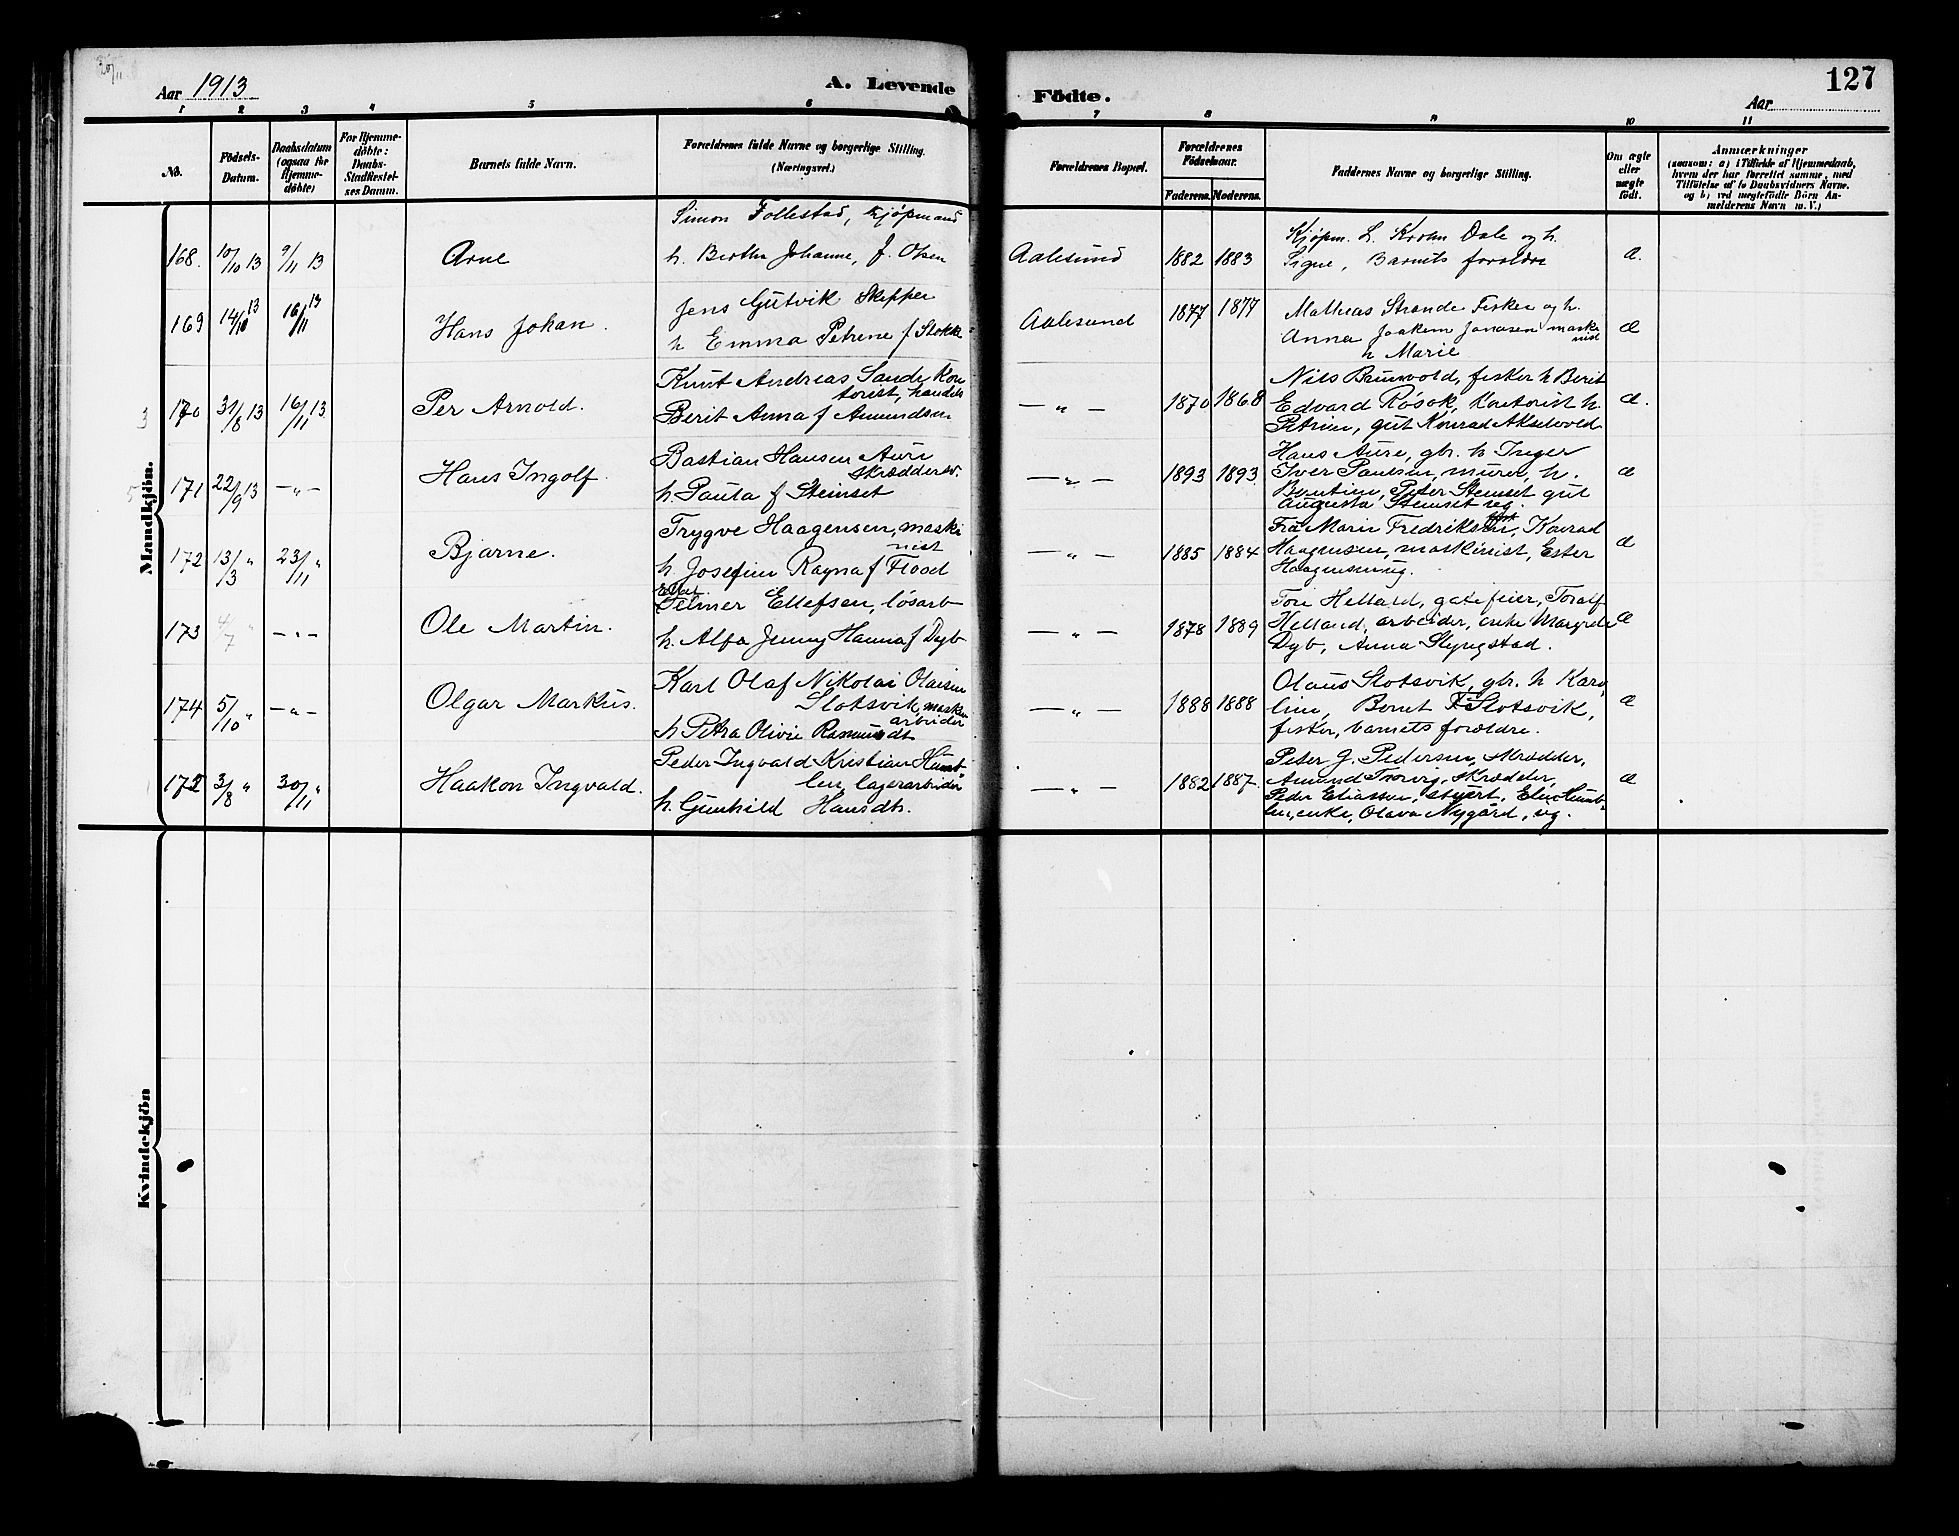 20/11
Aar 1913
A. Levende
Födte.
Aar
127
1 2 3 4 5 6 7 8 9 10 11
No.
Födsels-Datum.
Daabsdatum (ogsaa for Hjemmedöbte)
For Hjemmedöbte: Daabs-Stadfæstelses Datum.
Barnets fulde Navn.
Forældrenes fulde Navne og borgerlige Stilling. (Næringsvei.)
Forældrenes Bopæl.
Forældrenes Födselsaar.
Faderens. Moderens.
Faddernes Navne og borgerlige Stilling.
Om ægte eller uægte födt.
Anmærkninger
(saasom: a) i Tilfælde af Hjemmedaab, hvem der har forrettet samme, med Tilföielse af to Daabsvidners Navne, og b) ved uægtefödte Börn Anmelderens Navn m. V.)
Mandkjön.
168. 10/10 13 9/11 13 Arne
Simon Follestad, kjøpmand
h. Berthe Johanne, f. Olsen
Aalesund 1882 1883
Kjøpm. L. Krohn Dale og h.
Signe, Barnets forældre
æ.
169 14/10 13 16/11 13 Hans Johan.
Jens Gutvik Skipper
h Emma Petrine f Stokke
Aalesund 1877 1877
Mathias Strande Fisker og h.
Anna Joakim Jonasen maskinist
h Marie
æ
3 170 31/8 13 16/11 13 Per Arnold.
Knut Andreas Sande, kontorist, handels
Berit Anna f Amundsen
— " — 1870 1868
Nils Brunvold, fisker h Berit
Edvard Røsok, Kontorist h.
Petrine, gut Konrad Akselvold
æ.
5 171 22/9 13 — " — Hans Ingolf.
Bastian Hansen Aure
skræddersv.
h. Paula f Steinset
— " — 1893 1893
Hans Aure, gbr. h Inger
Iver Paulsen, murer, h.
Berntine, Peter Steinset gut
Augusta Steinset ug.
æ
172 13/3 " 23/11 " Bjarne.
Trygve Haagensen, maskinist
h. Josefine Ragna f Flood
— " — 1885 1884
Fra Marie Fredriksen, Konrad
Haagensen, maskinist, Ester
Haagensen ug.
æ
173 4/7 " — " — Ole Martin.
Elmer Ellefsen, løsarb
h. Alfa Jenny Hanna f Dyb
— " — 1878 1889
Tore Helland, gatefeier, Toralf
Helland, arbeider, enke Margrete
Dyb, Anna Slyngstad.
æ
174 5/10 " — " — Olgar Markus.
Karl Olaf Nikolai Olaisen
Slotsvik, maskinarbeider
h Petra Olivie Rasmusdt
— " — 1888 1888
Olaus Slotsvik, gbr. h Karoline,
Bernt F Slotsvik,
fisker, barnets forældre.
æ
172 3/8 " 30/11 " Haakon Ingvald.
Peder Ingvald Kristian Humblen,
lagerarbeider
h. Gunhild Hansdt.
— " — 1882 1887.
Peter J. Pedersen, skrædder,
Amund Torvig, skrædder,
Peder Eliassen, styert, Eline Humblen,
enke, Olava Nygård, ug.
æ
Kvindekjön